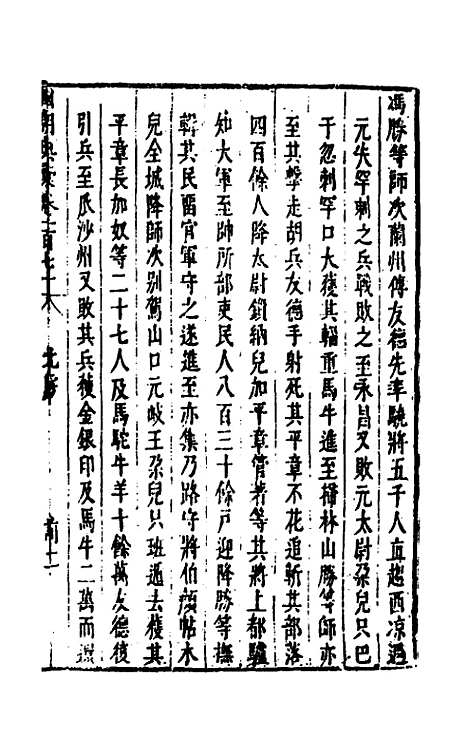 馮勝等師次蘭州傅友德先率驍將五千人直趨西凉遇
元失罕剌之兵戰敗之至永昌又敗元太尉朶兒只巴
于忽剌罕口大獲其輜重馬牛進至掃林山勝等師亦
至其擊走胡兵友德手射死其平章不花追斬其部落
四百餘人降太尉鎖納兒加平章管著等其將上都驢
知大軍至帥所部吏民人八百三十餘戶迎降勝等撫
輯其民留官軍守之遂進至亦集乃路守將伯顏帖木
兒全城降師次別駕山口元岐王朶兒只班遁去獲其
平章長加奴等二十七人及馬駝牛羊十餘萬友德復
引兵至瓜沙州又敗其兵獲金銀印及馬牛二萬而還
國朝典彙卷之一百七十